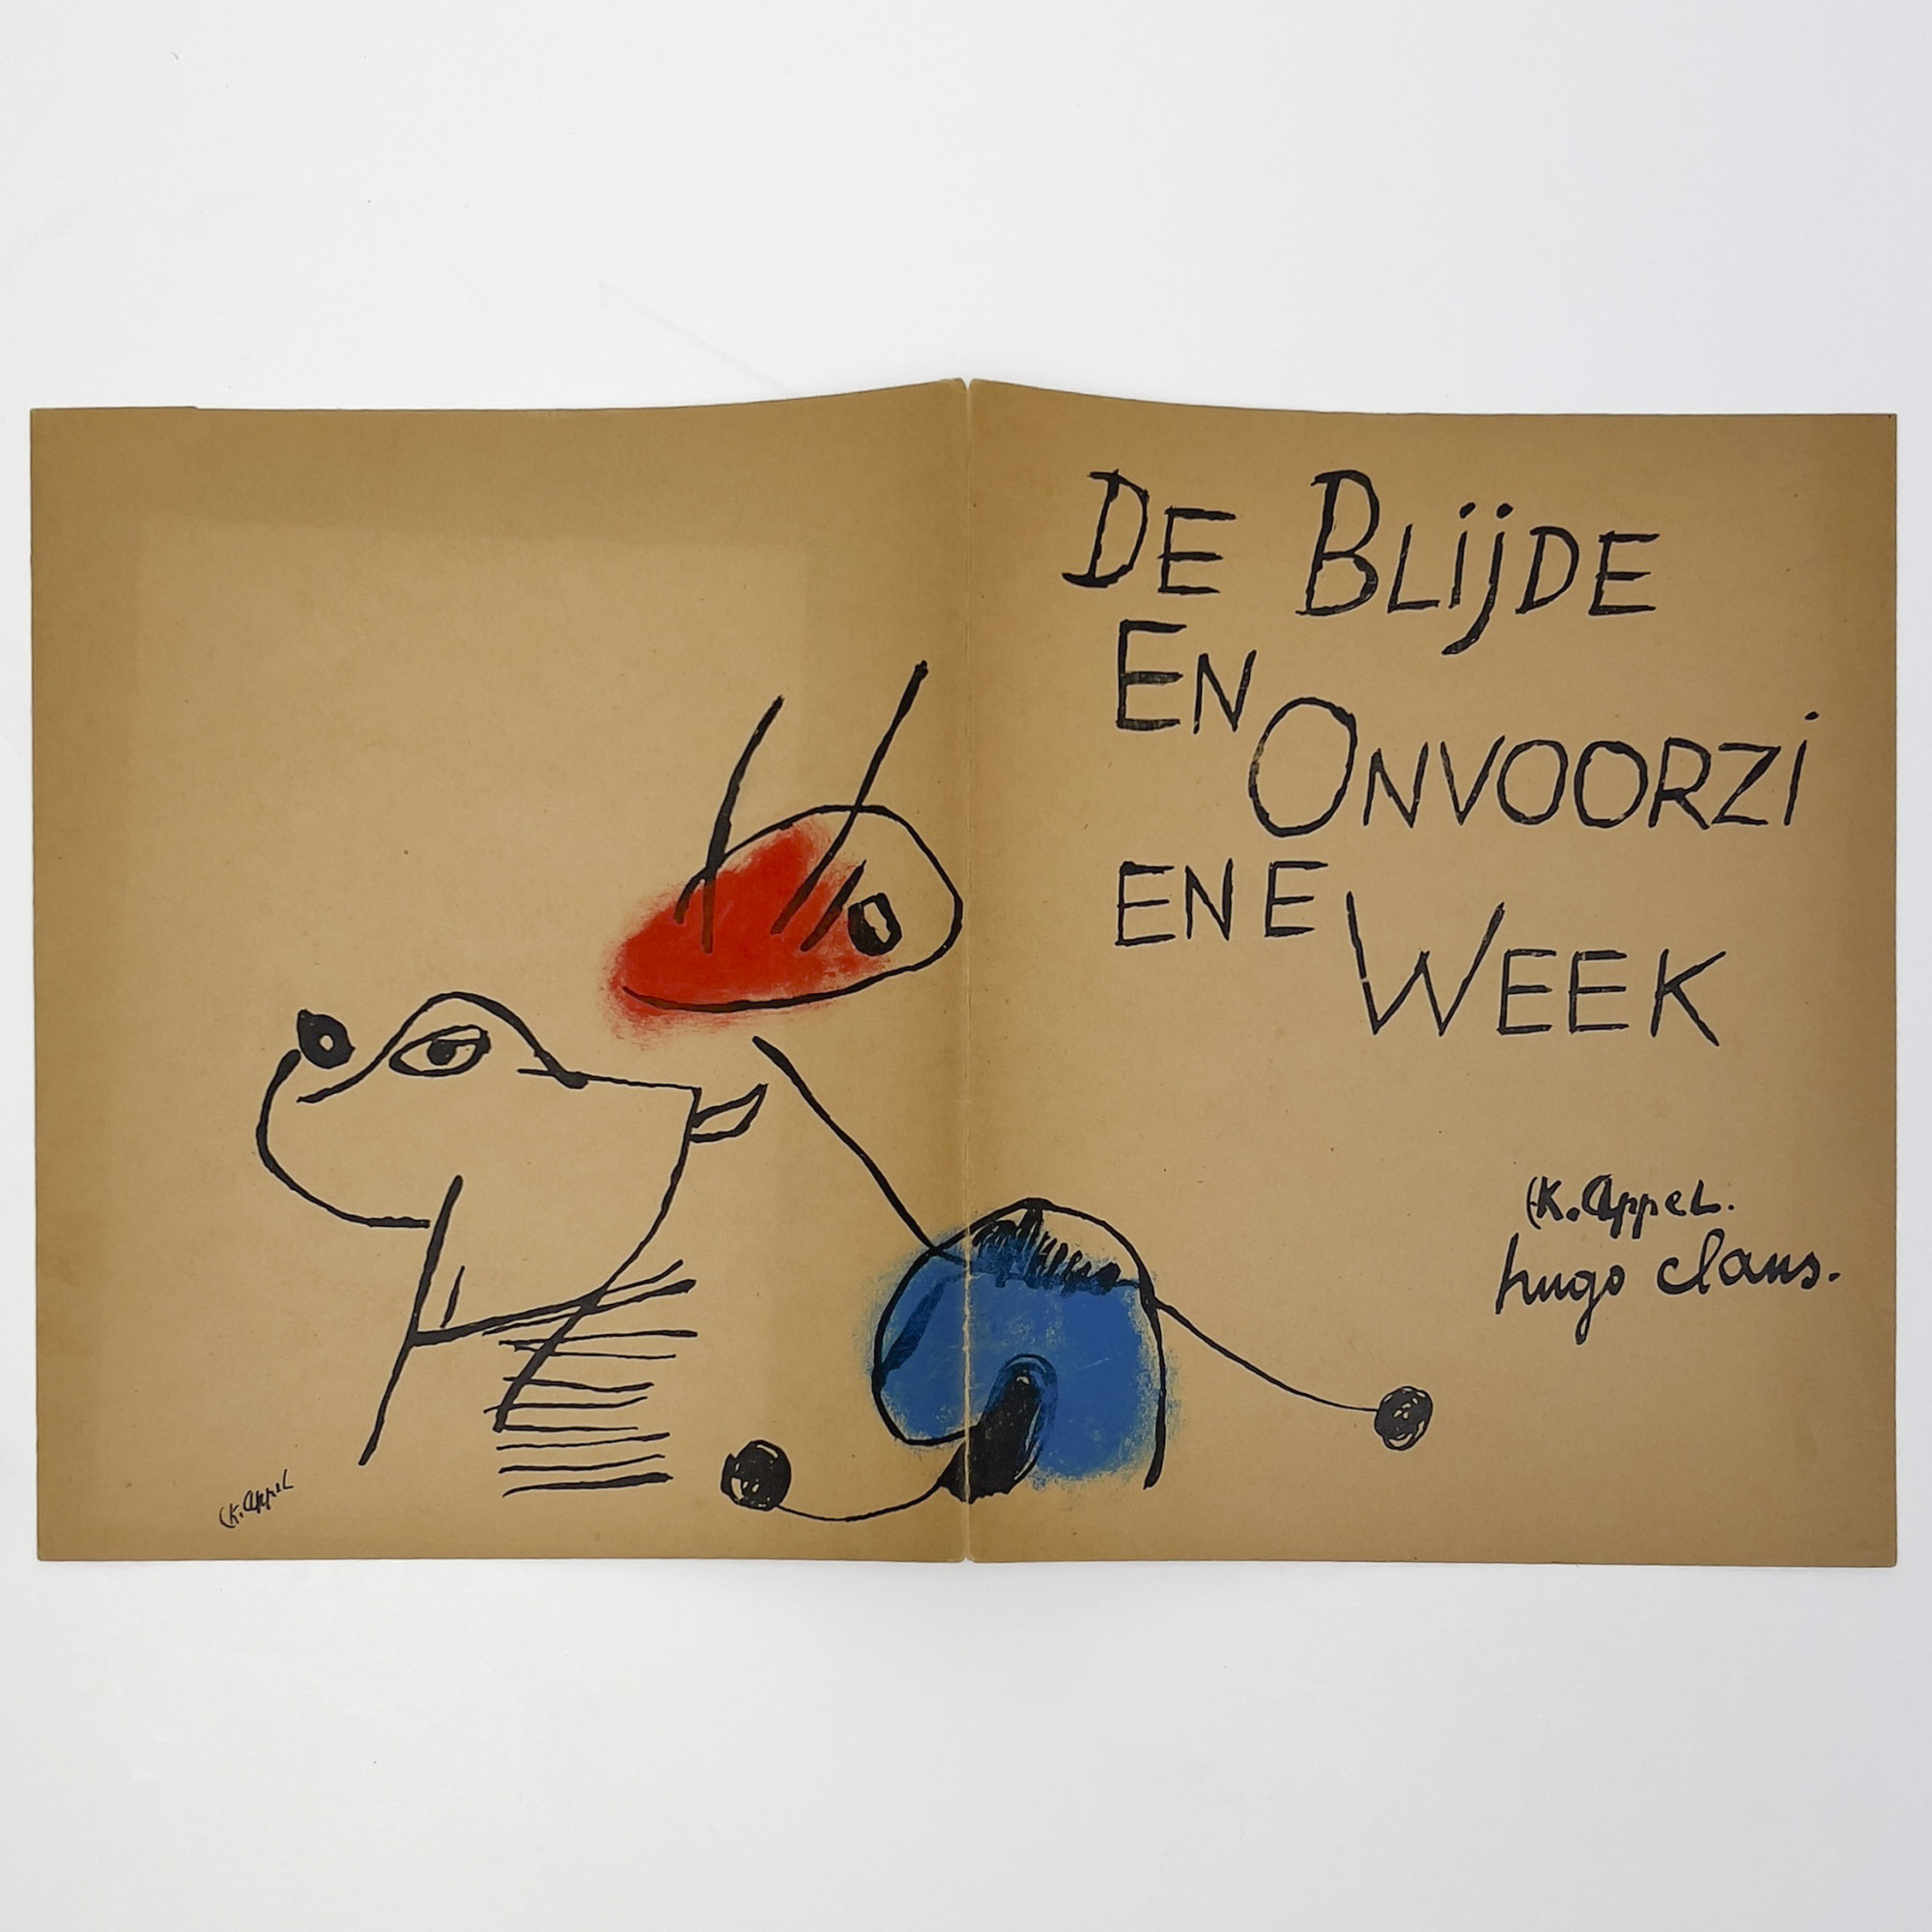 DE BLijDE
EN
ONVOORZi
ENE
WEEK
K. Appel.
hugo claus.
K. Appel